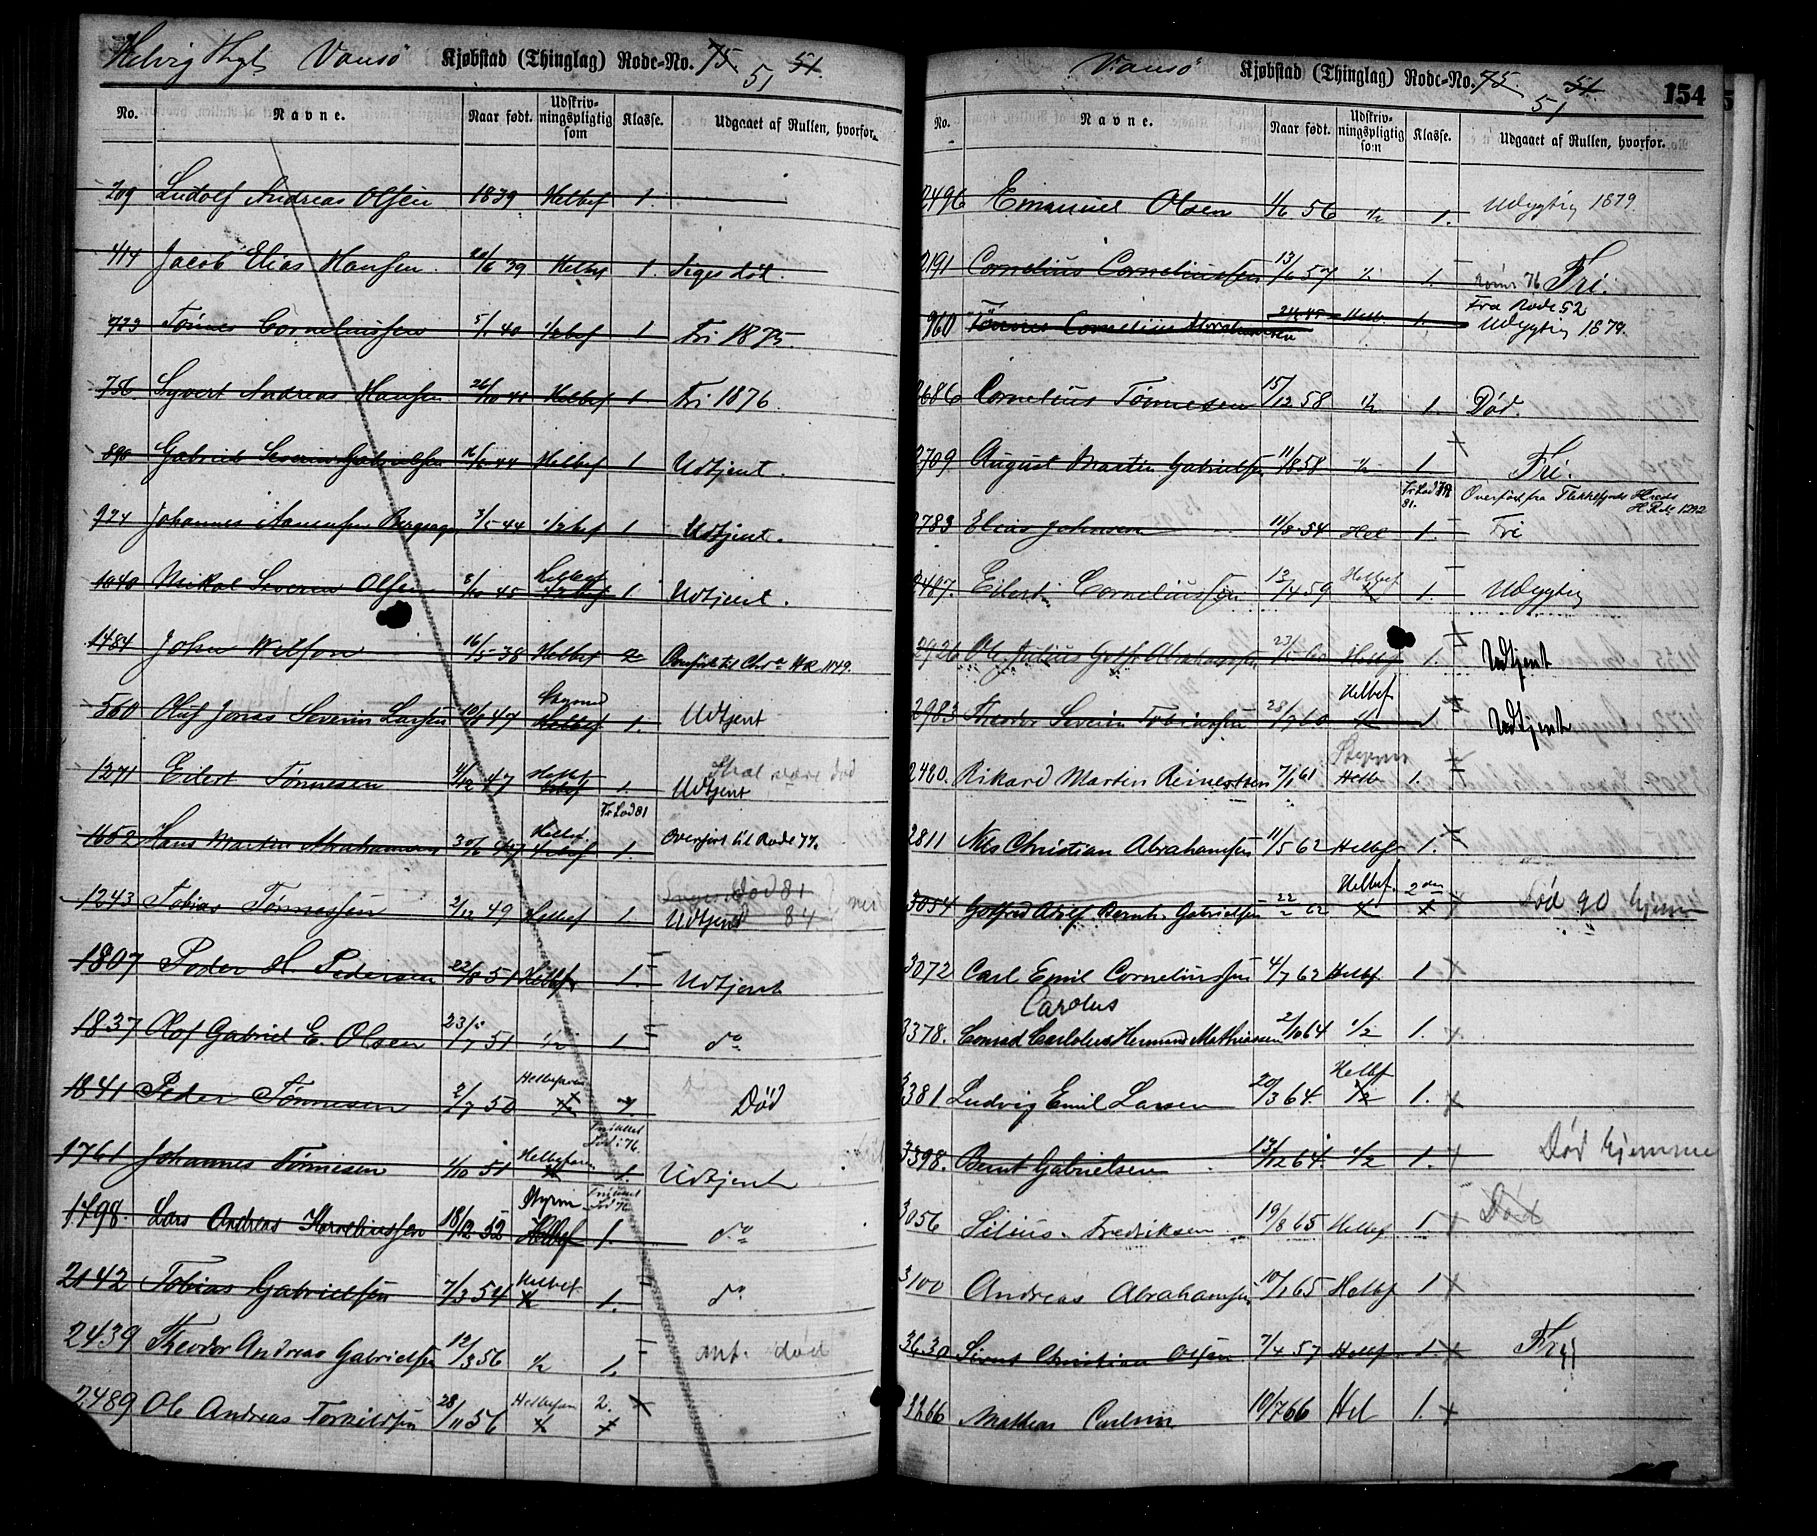 Vansö Kjøbstad (Thinglag) Rode-No. 75 51 51
No. Navne. Naar født. Udskrivningspligtig som Klasse. Udgaaet af Rullen, hvorfor.
209 Ludolf Andreas Olsen 1839 Helbef 1.
414 Jacob Elias Hansen 39 Helbef 1. Siges död.
Tönnes Corneliussen 5/1 40 1/2bef 1 Fri 1875
756 Syvert Andreas Hansen 26/10 41 Helbef 1 Fri 1876
890 Gabriel Severin Gabrielsen 44 Helbef 1 Udtjent.
924 Johannes Bergsage 3/5 44 1/2bef 1 Udtjent.
1040 Mikal Severin Olsen 45 Helbef 1/2bef 1 Udtjent.
1484 John Wilson 16/5 38 Helbef 2 Overført til Chra HR 1179.
560 Oluf Jonas Severin Larsen 10/8 47 Styrmd Helbef 1. Udtjent
1271 Eilert Tönnesen 4/12 47 Helbf 1. Skal være död Udtjent
Fr Lod 81
1652 Hans Martin Abrahamsen 30/6 47 Helbef 1. Overført til Rode 77.
1243 Tobias Tönnessen 2/12 49 Helbef 1 Död 81 Udtjent 84
1807 Peder H. Pedersen 22/8 51 Helbef 1. Udtjent
1837 Olof Gabriel E. Olsen 23/7 51 1/2 1. do
1841 Peder Tönnesen 2/7 50 Helbefaren 1. Död
1761 Johannes Tönnesen 4/10 51 Helbefaren 1. Udtjent
1798. Lars Andreas Korneliussen 18/12 52 Styrm Helbef 1. do
2142 Tobias Gabrielsen 7/3 54 Helbef 1. do
2439 Theodor Andreas Gabrielsen 12/3 56 1/2 1. ant. död
2489 Ole Andreas Torkildsen 28/11 56 Helbefaren 2.
Vansö Kjøbstad (Thinglag) Rode-No. 75. 51 51 154
No. Navne. Naar født. Udskrivningspligtig som Klasse. Udgaaet af Rullen, hvorfor.
2496 Emanuel Olsen 1/6 56 1/2 1. Udygtig 1879.
2191 Cornelius Corneliussen 13/6 57 1/2 1. Fri.
Fra Rode 52
960 Tönnes Cornelius Abrahamsen Helb. 1. Udygtig 1879.
2686 Cornelius Tönnesen 15/12 58 1/2 1. Död.
2709 August Martin Gabrielsen 11/8 58 1/2 1 Fri.
Overført fra Flekkefjords Kreds H.R. No 1292
2783 Elias Johnsen 11/8 54 Hel 1. Fri
2487. Eilert Corneliussen 13/4 59 Helbef 1. Udygtig
2926 Ole Julius Abrahamsen 60 Helbf 1. Udtjent
2983 Theodor Severin Tobiassen 28/7 60 Helbef 1 Udtjent
2460. Rikard Martin Reinertsen 7/1 61 Styrm Helb 1.
2811 Nils Christian Abrahamsen 11/5 62 Helbef 1.
3054 Gotfred Adolf Bernh. Gabrielsen 22/2 62 Helbef. 2den Död 90 hjemme
3072 Carl Emil Corneliussen 4/7 62 Helbf 1.
Carolus
3378. Conrad Carlolus Hermand Mathiassen 2/10 64 1/2 1.
3381 Ludvig Emil Larsen 20/3 64. Helbf 1/2 1.
3398. Bernt Gabrielsen 13/12 64. 1/2 1. Död hjemme
3056 Silius Fredriksen 19/8 65 Helbf 1. Död
3100 Andreas Abrahamsen 10/1 65 Helbf 1
3630 Sivert Christian Olsen 7/4 57 Helbf 1. Fri
3266 Mathias Carlsen 10/7 66 Hel 1.